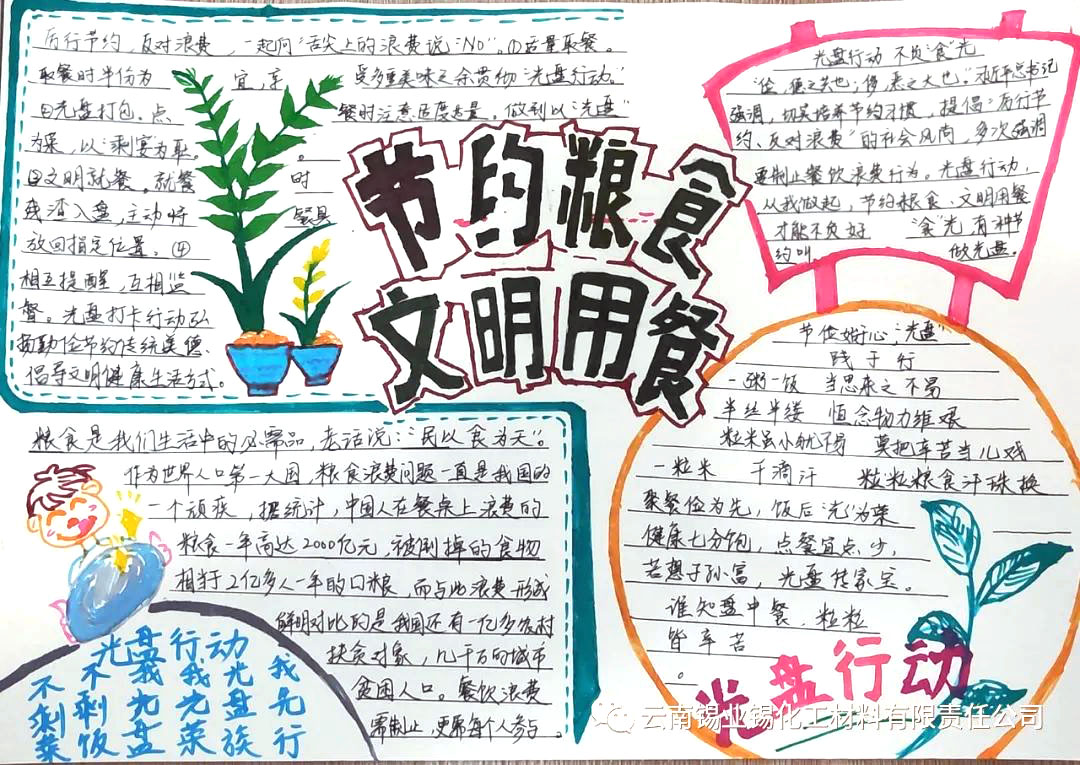 厉行节约,反对浪费,一起向"舌尖上的浪费说:"No"。①适量取餐。
取餐时半份为宜,享受多重美味之余贯彻"光盘行动"。
②光盘打包。点餐时注意适度适量。做到以"光盘"
为荣,以"剩宴"为耻。
③文明就餐。就餐时
残渣入盘,主动将餐具
放回指定位置。④
相互提醒,互相监
督。光盘打卡行动弘
扬勤俭节约传统美德、
倡导文明健康生活方式。
节约粮食
文明用餐
光盘行动 不负"食"光
"俭,德之共也;侈,恶之大也"习近平总书记
强调,切实培养节约习惯,提倡"厉行节
约、反对浪费"的社会风尚,多次强调
要制止餐饮浪费行为。光盘行动,
从我做起,节约粮食、文明用餐
才能不负好"食"光,有种节
约叫做光盘。
节俭好心"光盘"
践于行
一粥一饭 当思来之不易
半丝半缕 恒念物力维艰
粒米虽小犹不易 莫把辛苦当儿戏
一粒米 千滴汗 粒粒粮食汗珠换
聚餐俭为先,饭后"光"为荣
健康七分饱,点餐宜点少,
若想子孙富,光盘传家宝。
谁知盘中餐,粒粒
皆辛苦
。
光盘行动
粮食是我们生活中的必需品,老话说:"民以食为天"。
作为世界人口第一大国,粮食浪费问题一直是我国的
一个顽疾,据统计,中国人在餐桌上浪费的
粮食一年高达2000亿元,被倒掉的食物
相当于2亿多人一年的口粮,而与此浪费形成
鲜明对比的是我国还有一亿多农村
扶贫对象,几千万的城市
贫困人口。餐饮浪费
需制止,更需每个人参与。
光盘行动
不剩菜
不剩饭
我光盘
我光荣
光盘族
我先行
云南锡业锡化工材料有限责任公司